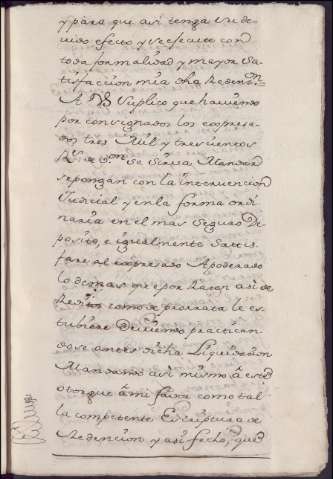 y para que asi tenga su de
vido efecto y se efectue con
toda formalidad y mayor Sa
tisfaccion mia dha Redenc.on
A VS Suplico que haviendo
por consignados los expresa
dos tres Mil y trescientos
R.s de V.on se Sirva Mandar
se pongan con la intervencion
Judicial y en la forma ordi
naria en el mas Seguro De
posito, e igualmente Satis
face al expresado Apoderado
lo demas que por Razon asi de
Reditos como de prorrata le es
tubiere deviendo practican
dose antes dicha Liquidacion
Mandando asi mismo â este
otorgue â mi favor como tal
la competente Escriptura de
Redencion y asi fecho, que